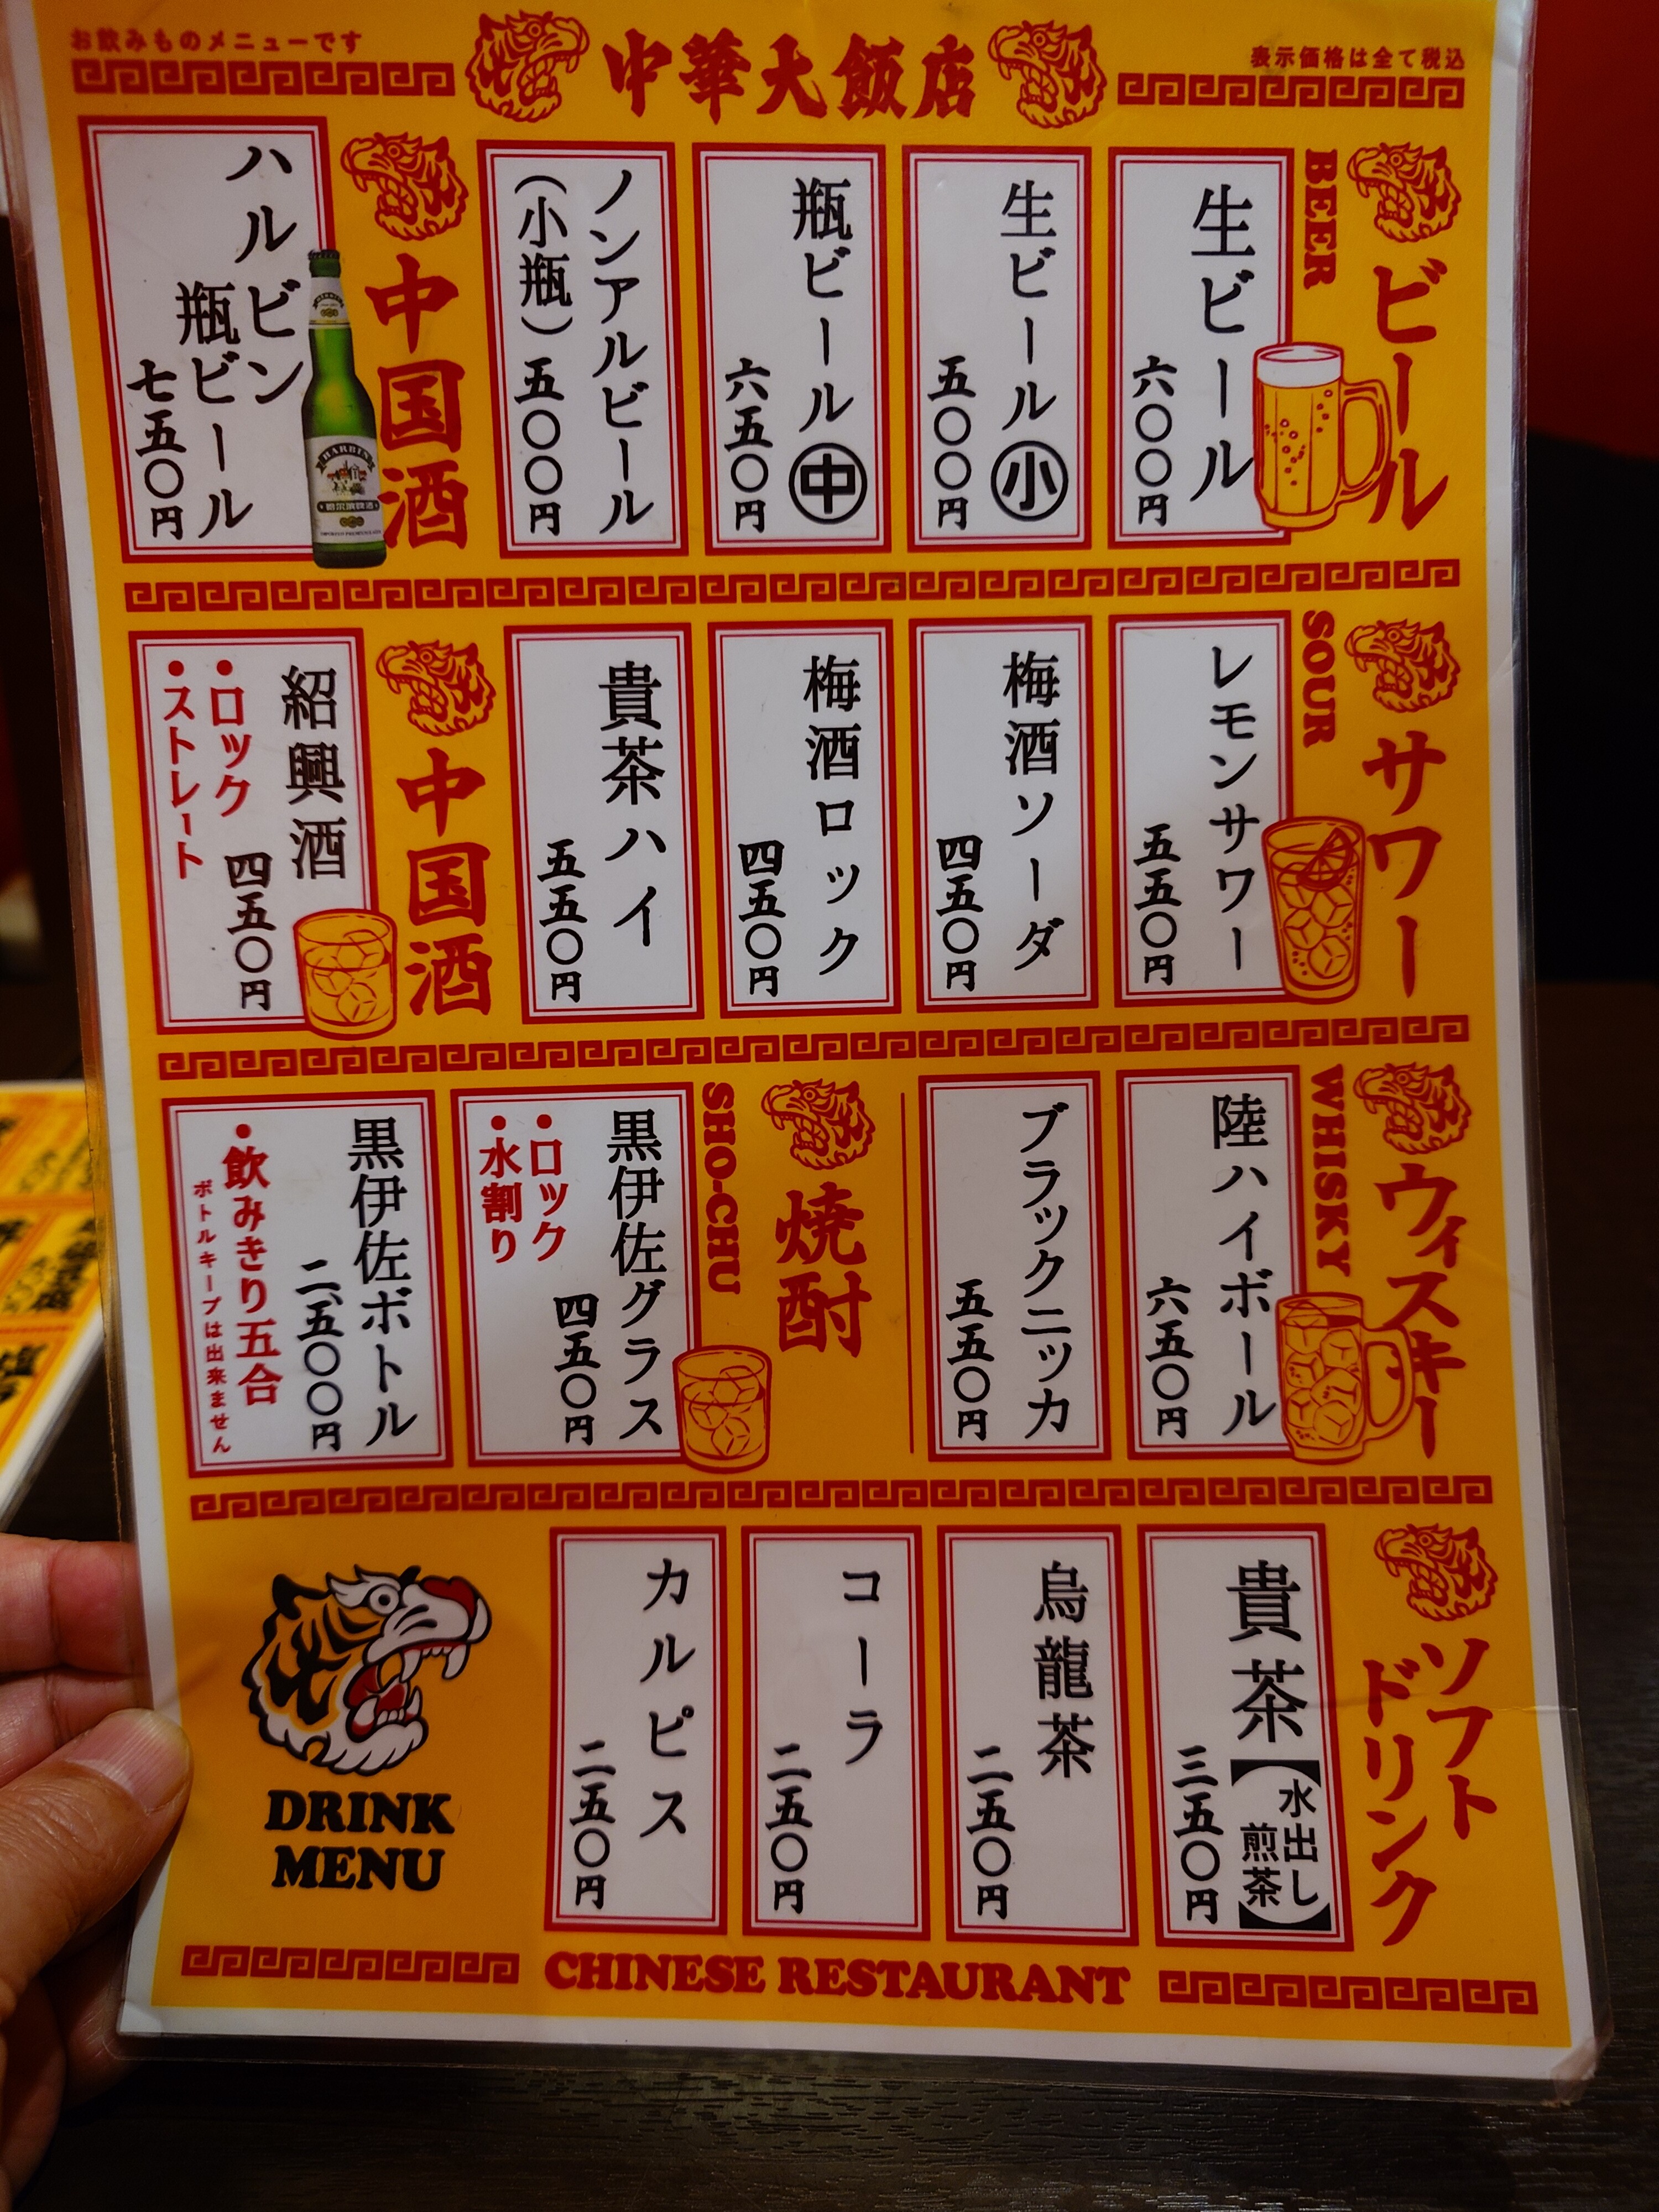 お飲みものメニューです
中華大飯店
表示価格は全て税込
ビール
BEER
生ビール
六〇〇円
生ビール㊥小
五〇〇円
瓶ビール㊥
六五〇円
ノンアルビール
（小瓶）五〇〇円
中国酒
ハルビン
瓶ビール
七五〇円
HARBIN
サワー
SOUR
レモンサワー
五五〇円
梅酒ソーダ
四五〇円
梅酒ロック
四五〇円
貴茶ハイ
五五〇円
中国酒
紹興酒
四五〇円
•ロック
•ストレート
ウィスキー
WHISKY
陸ハイボール
六五〇円
ブラックニッカ
五五〇円
焼酎
SHO-CHU
黒伊佐グラス
四五〇円
•ロック
•水割り
黒伊佐ボトル
二、五〇〇円
•飲みきり五合
ボトルキープは出来ません
ソフト
ドリンク
貴茶【水出し
煎茶】
三五〇円
烏龍茶
二五〇円
コーラ
二五〇円
カルピス
二五〇円
DRINK
MENU
CHINESE RESTAURANT